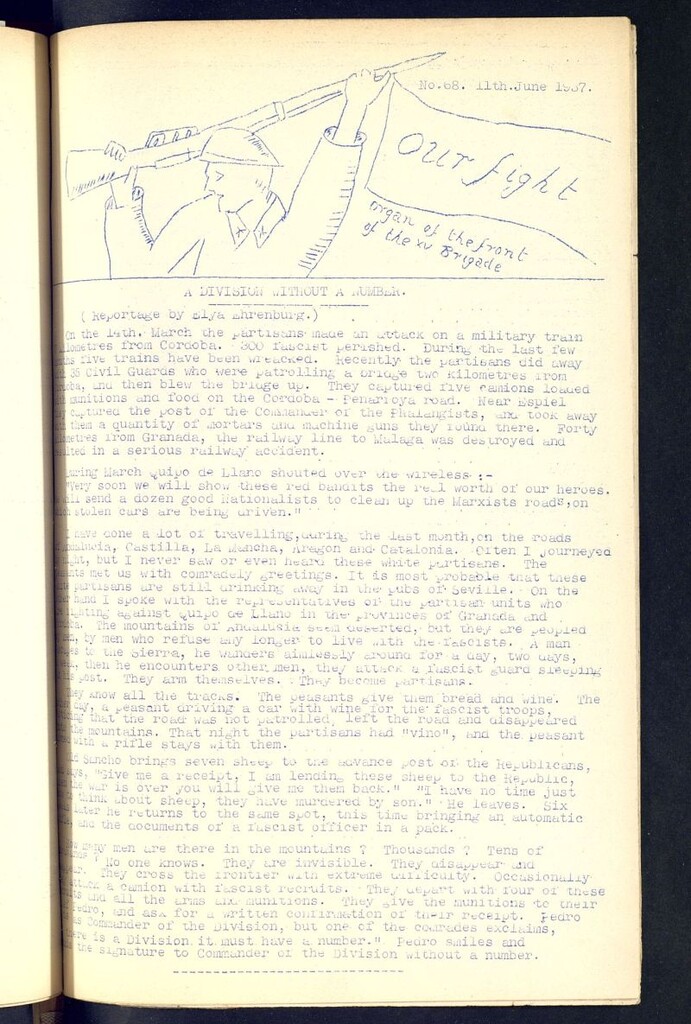 No.68. 11th.June 1937.
Our fight
organ of the front
of the XV Brigade
A DIVISION WITHOUT A NUMBER.
( Reportage by Elya Ehrenburg.)
On the 14th. March the partisans made an attack on a military train
lometres from Cordoba. 300 fascist perished. During the last few
ths five trains have been wreacked. Recently the partisans did away
38 Civil Guards who were patrolling a bridge two kilometres from
doba, and then blew the bridge up. They captured five camions loaded
munitions and food on the Cordoba - Penarroya road. Near Espiel
ey captured the post of the Commander of the Phalangists, and took away
them a quantity of mortars and machine guns they found there. Forty
lometres from Granada, the railway line to Malaga was destroyed and
ulted in a serious railway accident.
During March Quipo de Llano shouted over the wireless :-
"Very soon we will show these red bandits the real worth of our heroes.
ill send a dozen good Nationalists to clean up the Marxists roads,on
ch stolen cars are being driven."
I have done a lot of travelling,during the last month,on the roads
ndalucia, Castilla, La Mancha, Aragon and Catalonia. Often I journeyed
ight, but I never saw or even heard these white partisans. The
ants met us with comradely greetings. It is most probable that these
te partisans are still drinking away in the pubs of Seville. On the
er hand I spoke with the representatives of the partisan units who
fighting against Quipo de Llano in the provinces of Granada and
oba. The mountains of Andalusia seem deserted, but they are peopled
men, by men who refuse any longer to live with the fascists. A man
es to the Sierra, he wanders aimlessly around for a day, two days,
eek, then he encounters other men, they attack a fascist guard sleeping
is post. They arm themselves. They become partisans.
ey know all the tracks. The peasants give them bread and wine. The
er day, a peasant driving a car with wine for the fascist troops,
icing that the road was not patrolled, left the road and disappeared
the mountains. That night the partisans had "vino", and the peasant
with a rifle stays with them.
ld Sancho brings seven sheep to the advance post of the Republicans,
ays, "Give me a receipt, I am lending these sheep to the Republic,
the war is over you will give me them back." "I have no time just
think about sheep, they have murdered by son." He leaves. Six
later he returns to the same spot, this time bringing an automatic
e, and the documents of a fascist officer in a pack.
ow many men are there in the mountains ? Thousands ? Tens of
? No one knows. They are invisible. They disappear and
ear. They cross the frontier with extreme difficulty. Occasionally
ttack a camion with fascist recruits. They depart with four of these
ts and all the arms and munitions. They give the munitions to their
edro, and ask for a written confirmation of their receipt. Pedro
s Commander of the Division, but one of the comrades exclaims,
ere is a Division it must have a number." Pedro smiles and
the signature to Commander of the Division without a number.